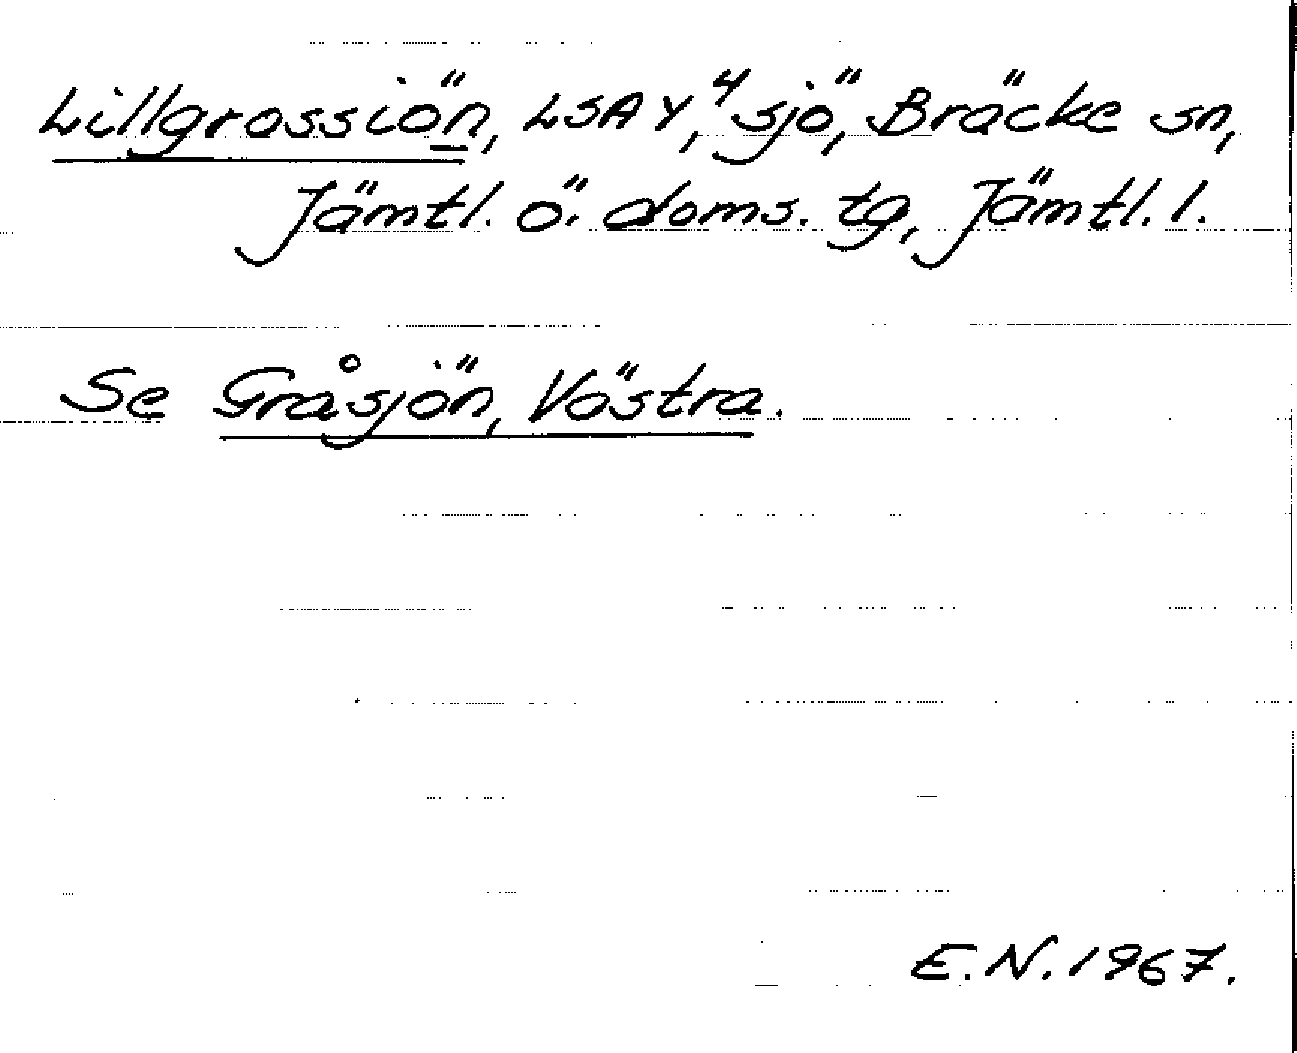 Lillgrossiön, LSA Y, "sjö", Bräcke sn,
Jämtl. ö. doms. tg, Jämtl. l.
Se Gråsjön, Västra.
E.N. 1967.